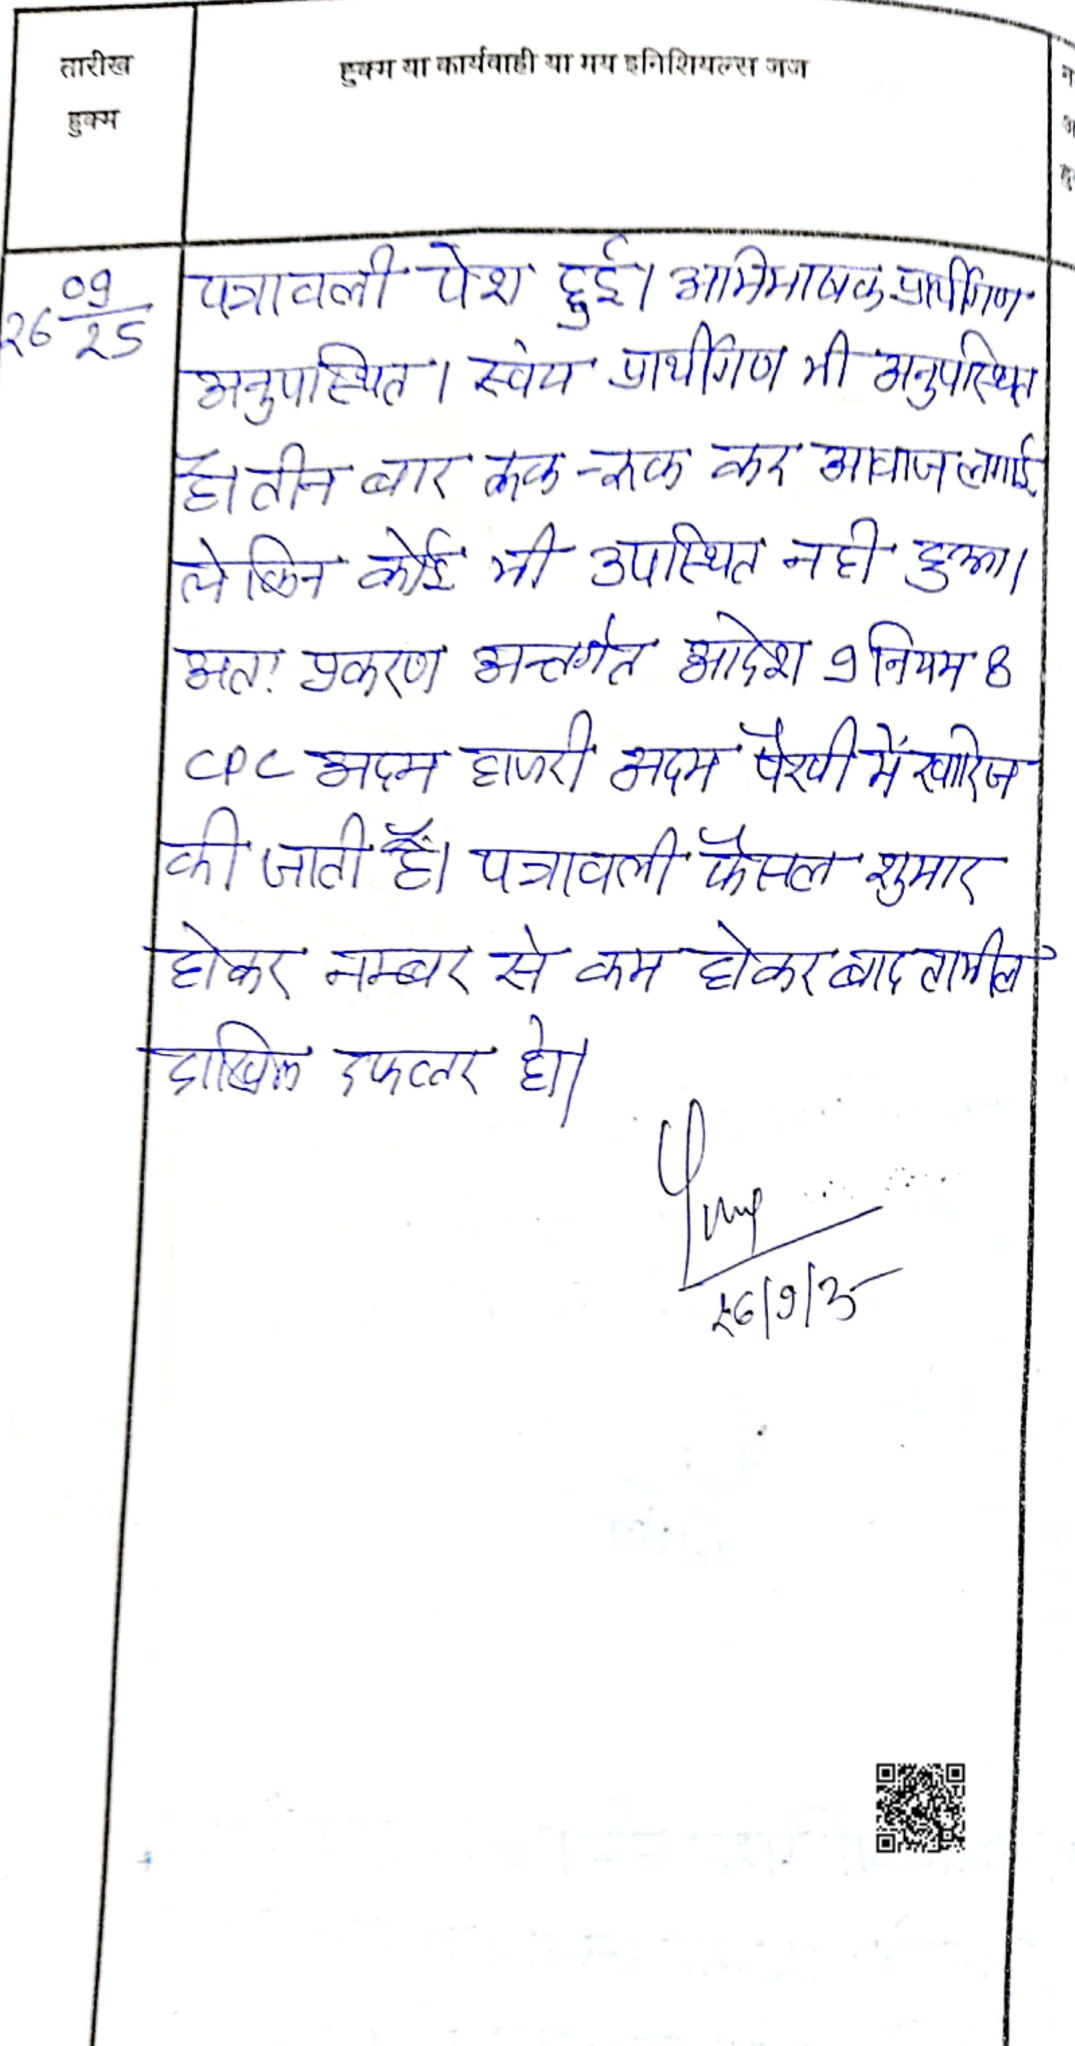 तारीख
हुक्म
हुक्म या कार्यवाही या मय इनिशियल्स जज
26 09/25
पत्रावली पेश हुई। अभिभाषक प्रार्थीगण
अनुपस्थित। स्वंय प्रार्थीगण भी अनुपस्थित
है। तीन बार रूक-रूक कर आवाज लगाई
लेकिन कोई भी उपस्थित नही हुआ।
अतः प्रकरण अन्तर्गत आदेश 9 नियम 8
CPC अदम हाजरी अदम पैरवी में खारिज
की जाती है। पत्रावली फैसल शुमार
होकर नम्बर से कम होकर बाद तामील
दाखिल दफ्तर हो।
26/9/25